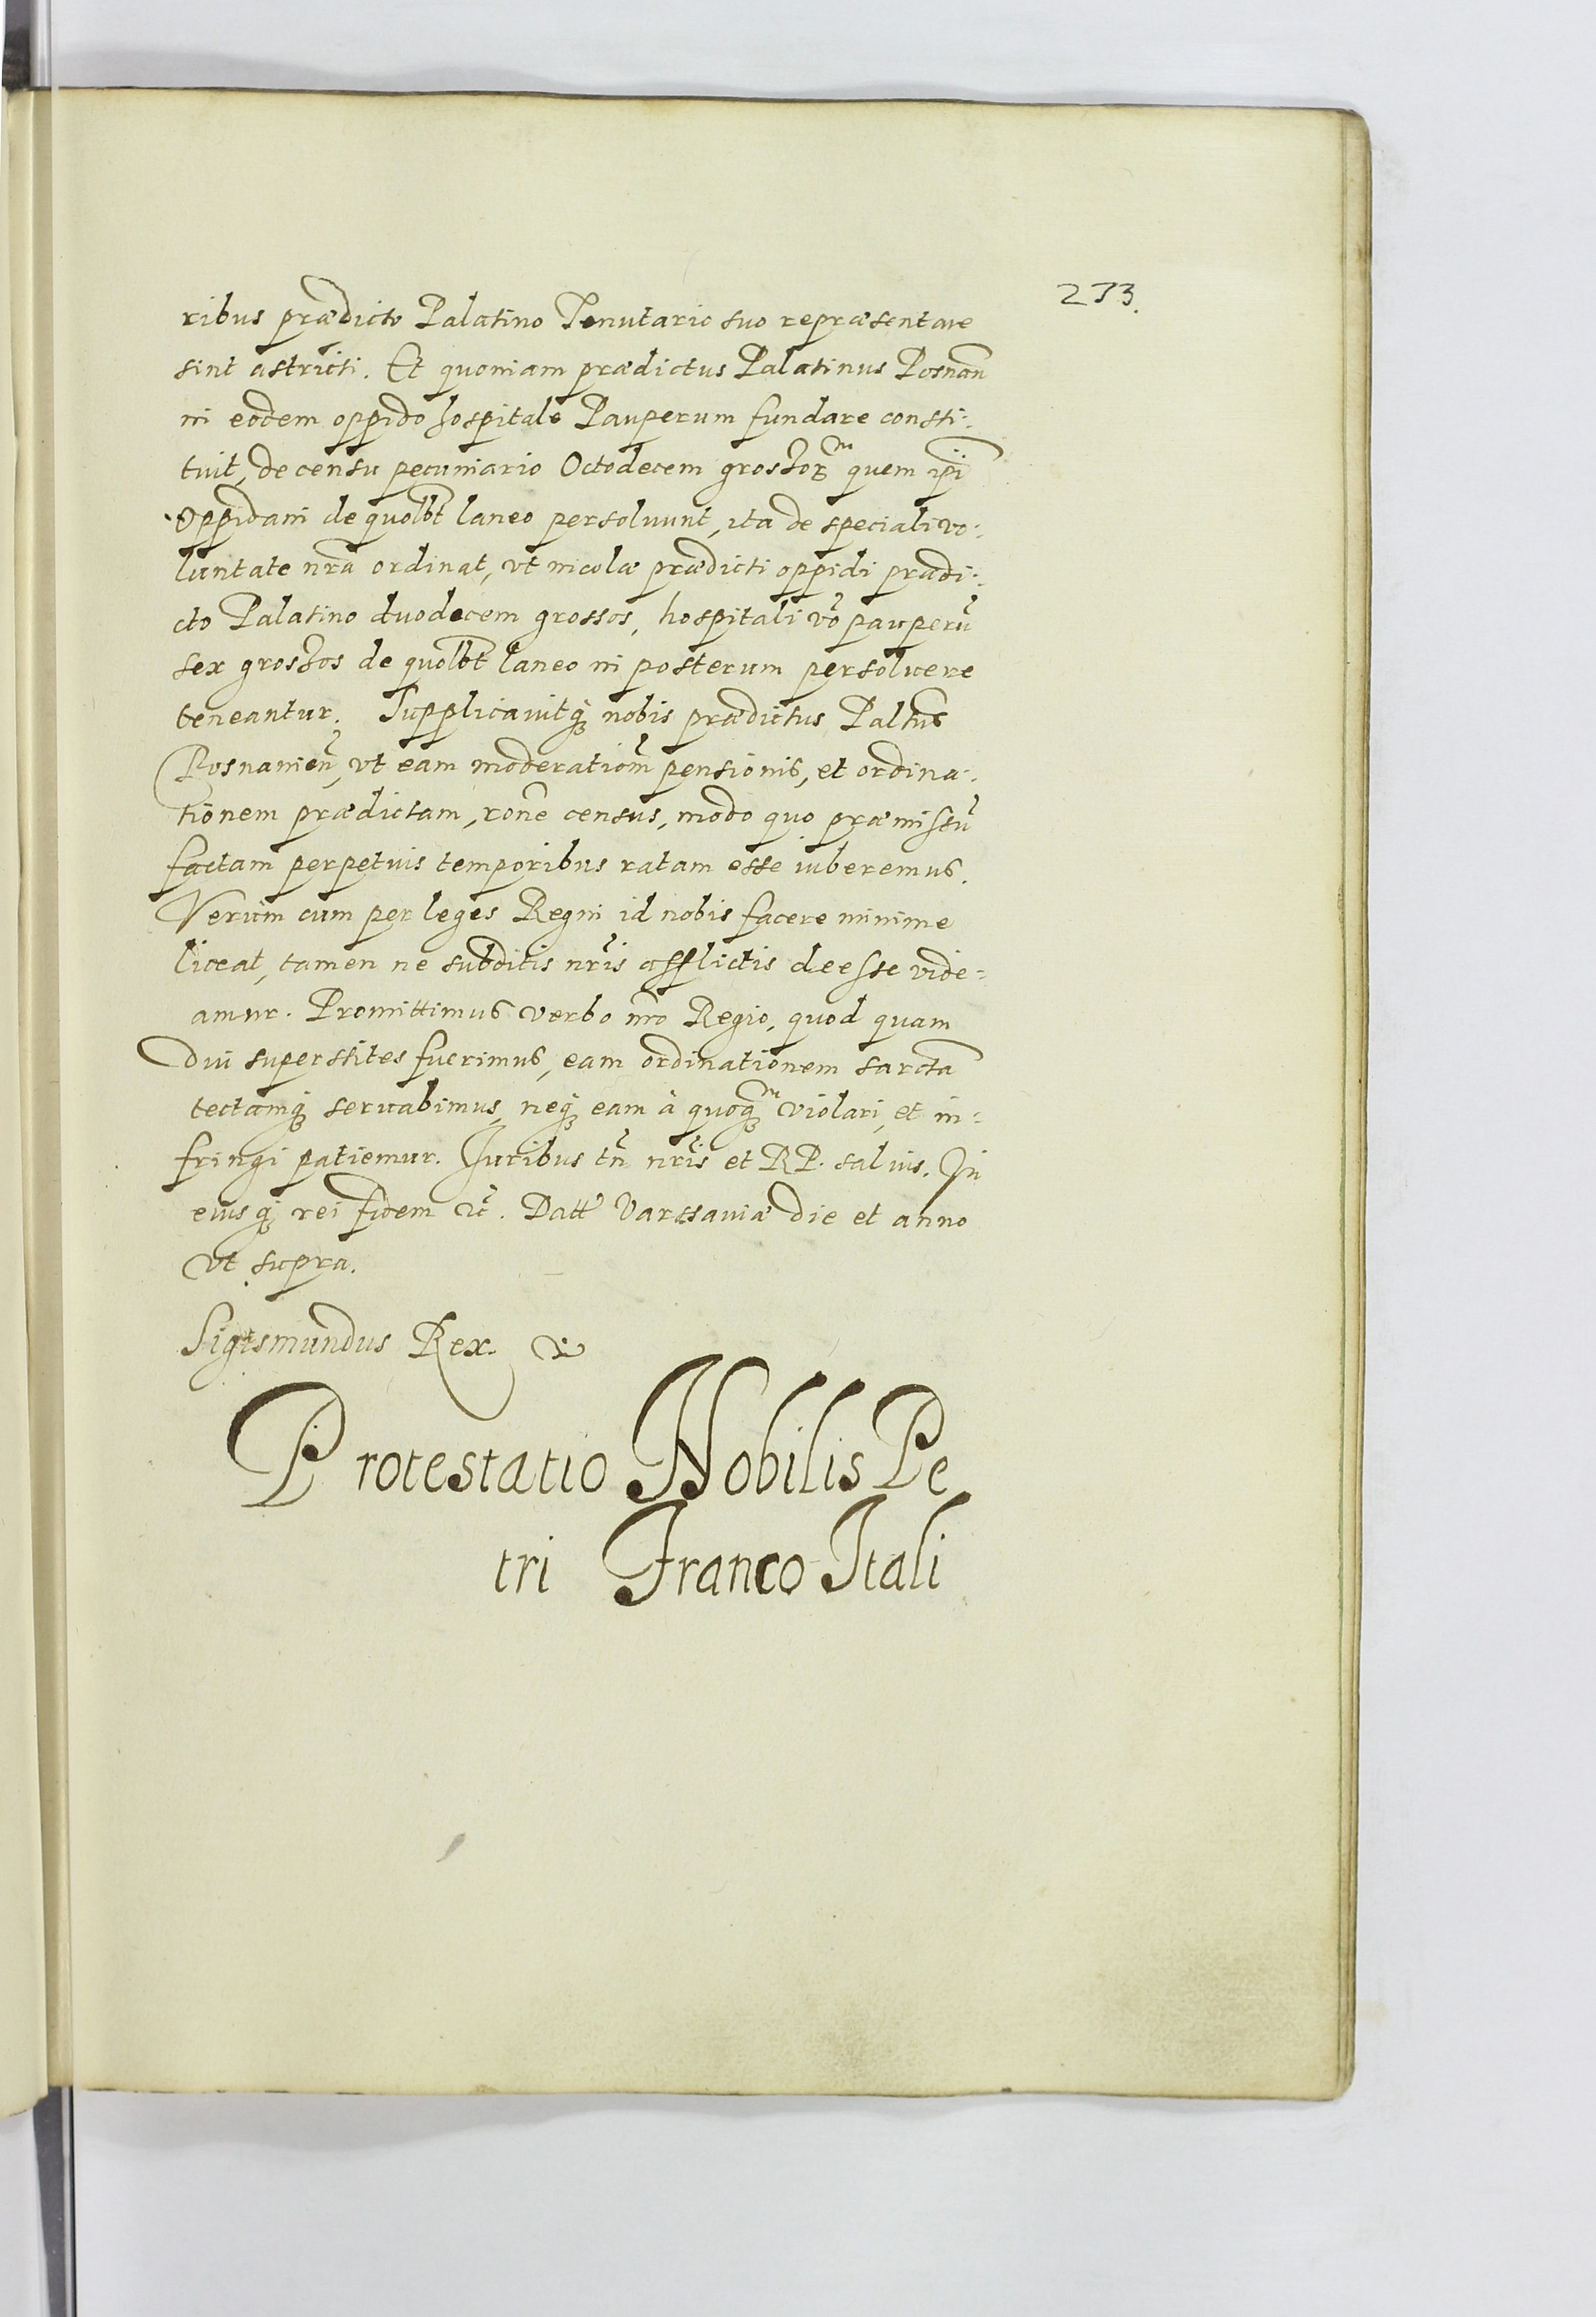 233.
ribus prædicto Palatino Tenutario suo repræsentare
sint astricti. Et quoniam prædictus Palatinus Posnan̄
in eodem oppido hospitale Pauperum fundare consti-
tuit, de censu pecuniario Octodecem grossorᵐ quem ip̄i
Oppidani de quolb̄t laneo persoluunt, ita de speciali vo-
luntate nr̄a ordinat, vt incolæ prædicti oppidi prædi-
cto Palatino duodecem grossos, hospitali vo᷃ pauperu᷃
sex grossos de quolb̄t laneo in posterum persoluere
teneantur. Supplicauitq́ʒ nobis prædictus Paltn̄us
Posnanien̄, vt eam moderatiom̄ pensionis, et ordina-
tionem prædictam, rōne census, modo quo præmissu᷃
factam perpetuis temporibus ratam esse iuberemus.
Verùm cum per leges Regni id nobis facere minime
liceat, tamen ne subditis nr̄is afflictis deesse vide-
amur. Promittimus verbo nr̄o Regio, quod quam
diu superstites fuerimus, eam ordinationem sarctā
tectamq́ʒ seruabimus, neq́ʒ eam à quoq́ʒᵐ violari, et in-
fringi patiemur. Juribus tn̄ nr̄is et RP. saluis. In
eius q́ʒ rei fidem &c̄. Datt Varssauiæ die et anno
vt supra.
Sigismundus Rex.
Protestatio Nobilis Pe
tri Franco Itali